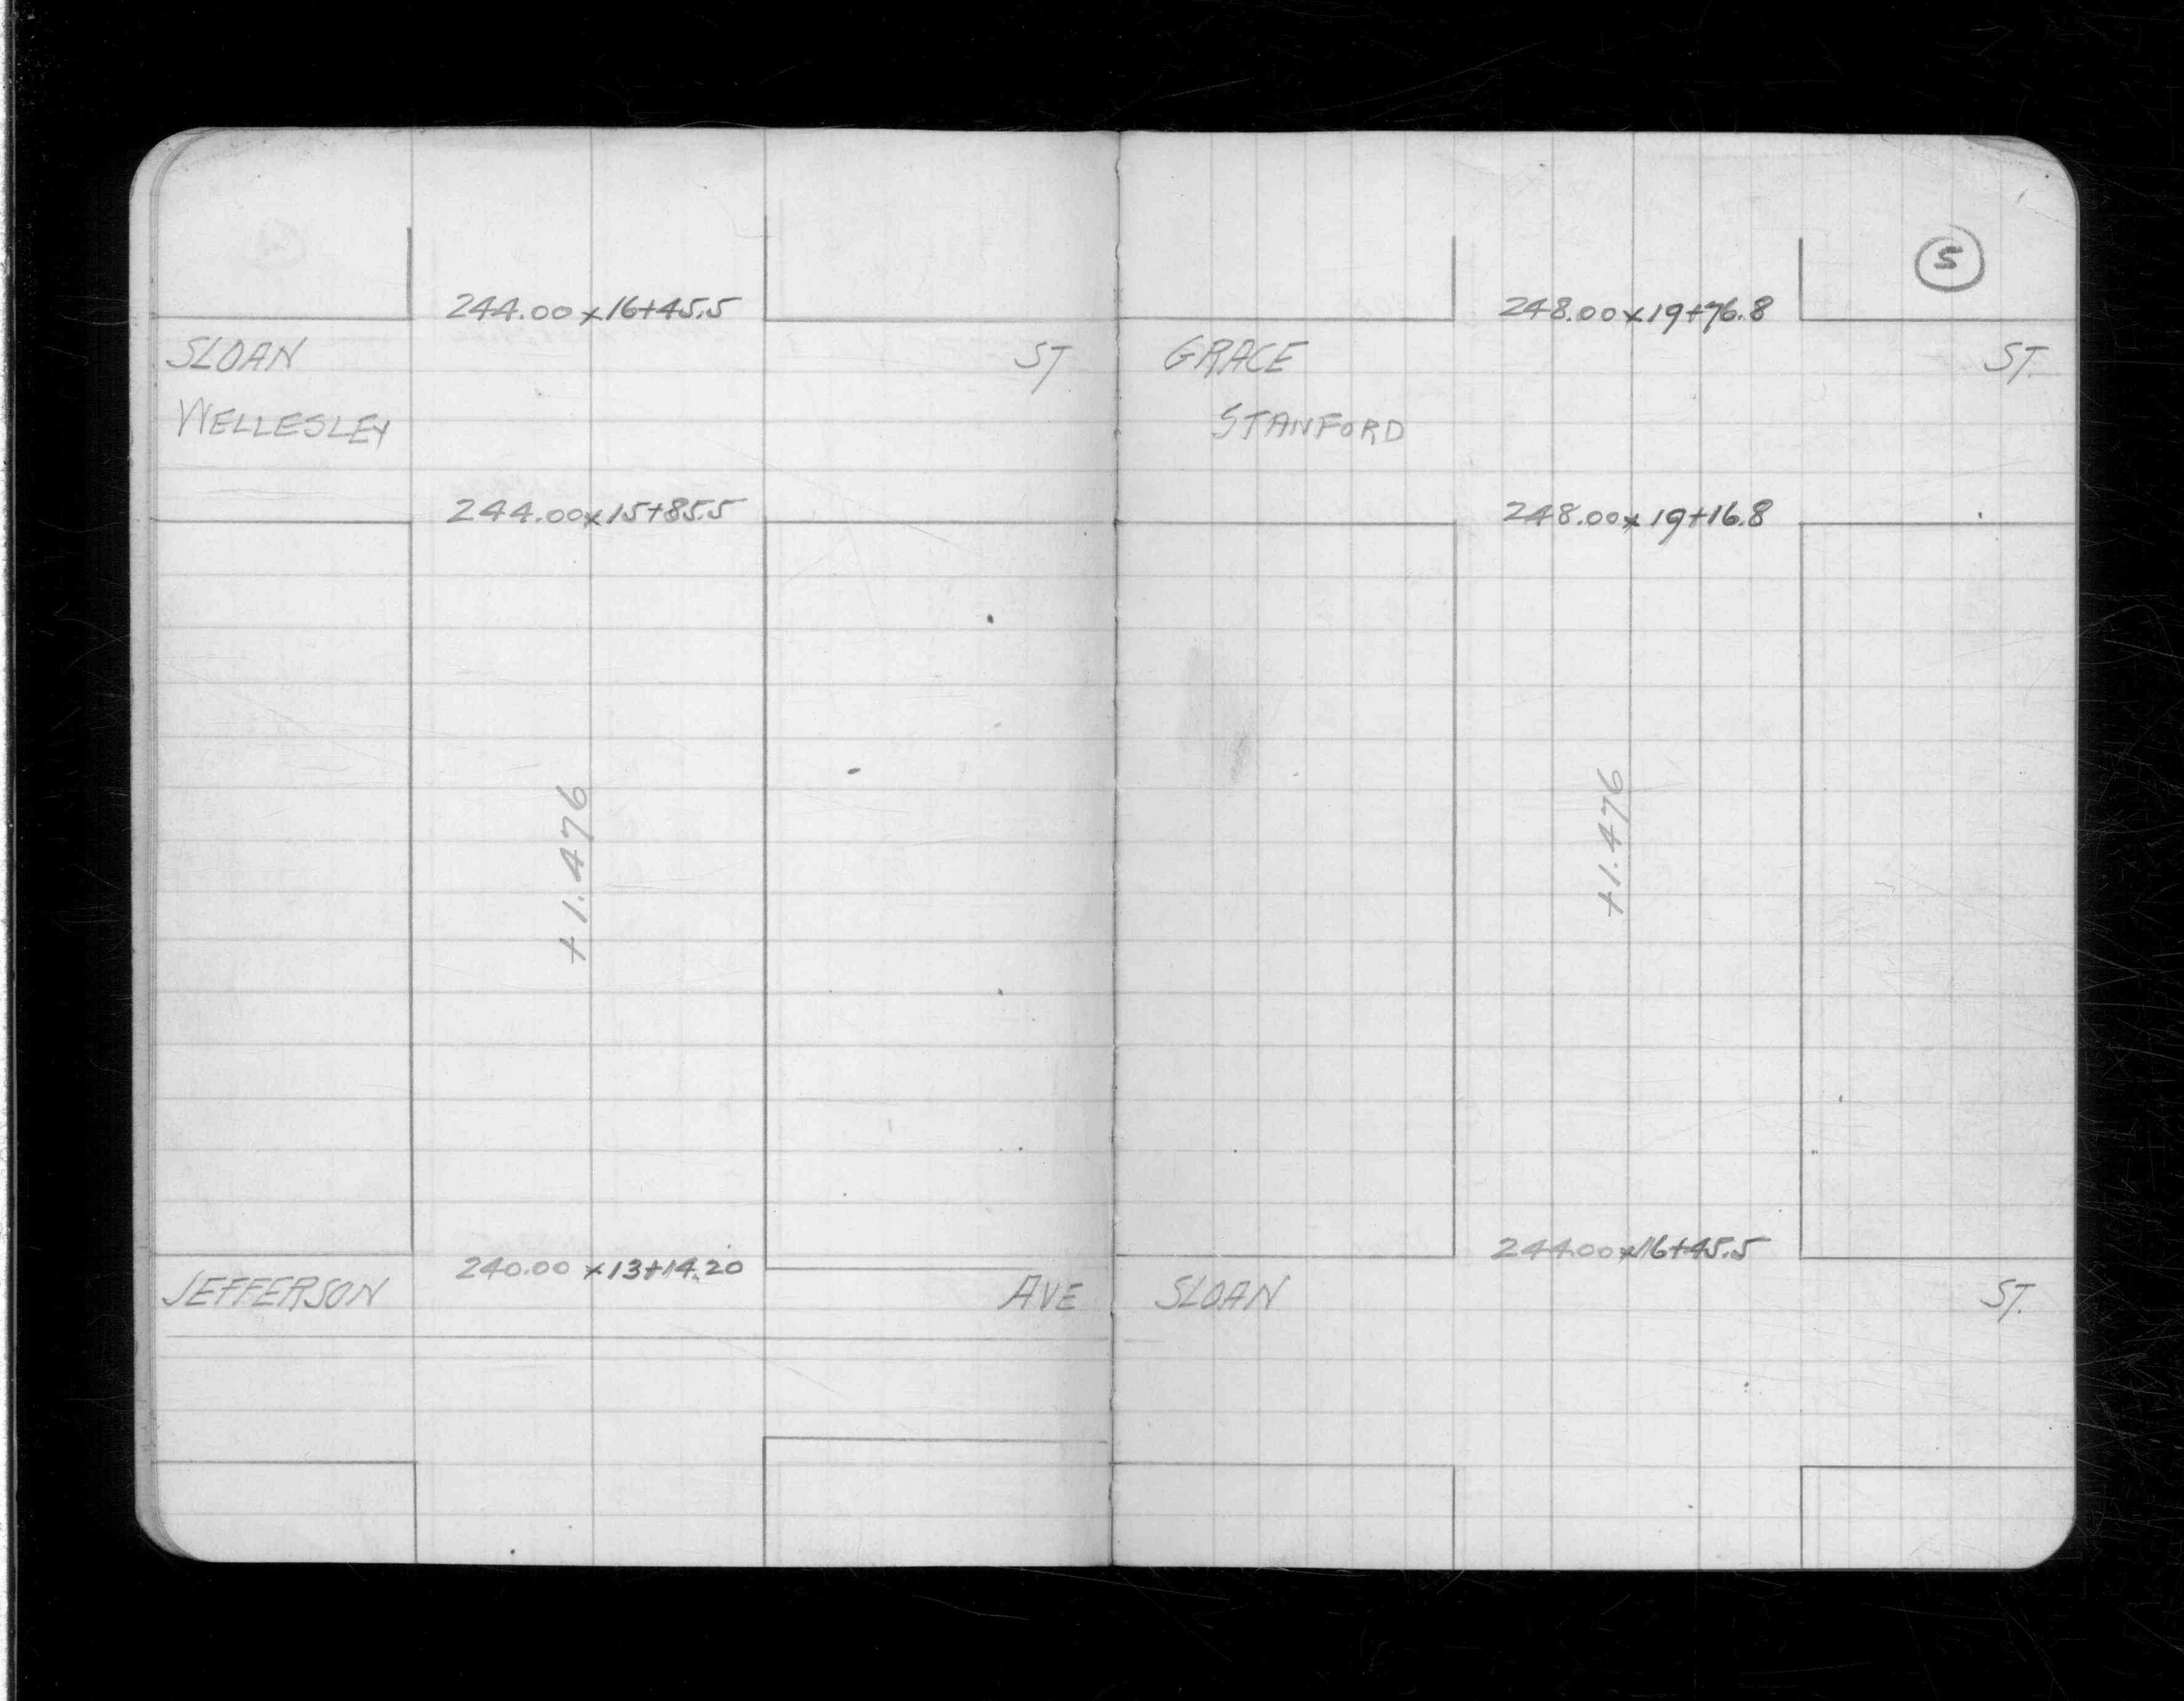 244.00 x 16+45.5
SLOAN ST
WELLESLEY
244.00 x 15+85.5
+1.476
240.00 x 13+14.20
JEFFERSON AVE
5
248.00 x 19+76.8
GRACE ST.
STANFORD
248.00 x 19+16.8
+1.476
244.00 x 16+45.5
SLOAN ST.